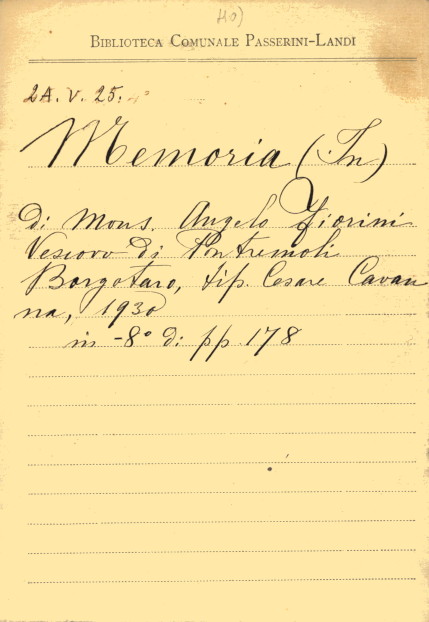 BIBLIOTECA COMUNALE PASSERINI-LANDI
2A. V. 25.
Memoria (In)
di Mons. Angelo Fiorini
Vescovo di Pontremoli
Borgotaro, tip. Cesare Cavan
na, 1930
in -8° di pp. 178